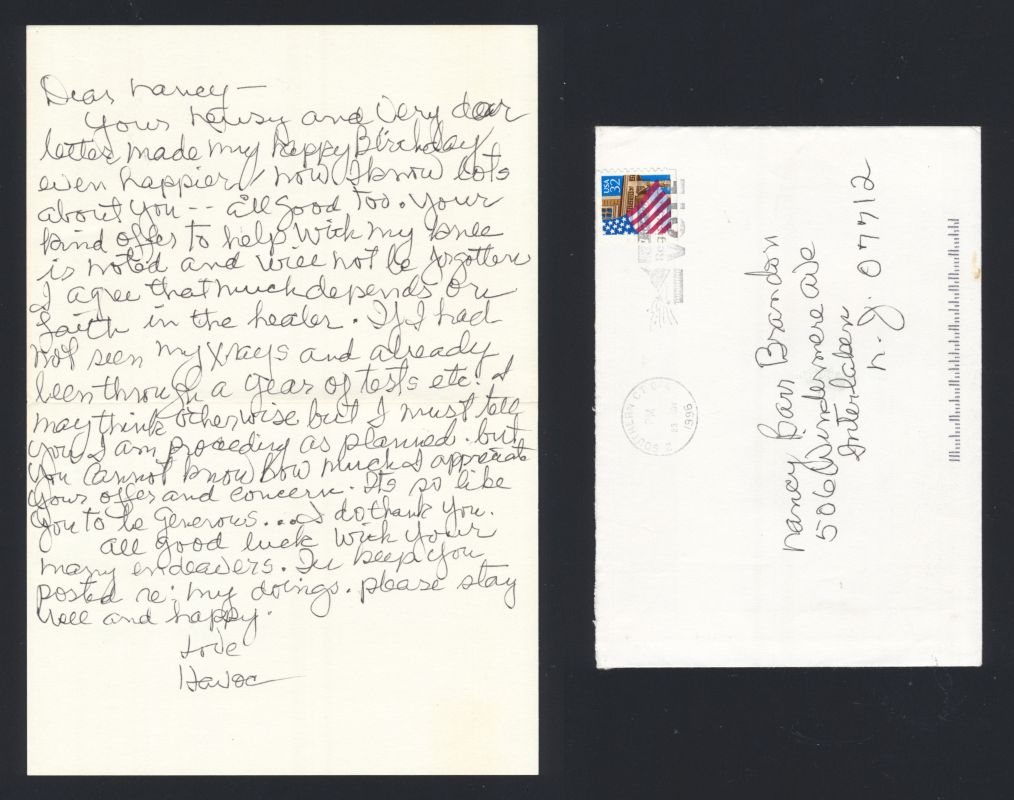 Dear Nancy —
Your newsy and very dear
letter made my happy Birthday
even happier, now I know lots
about you -- all good too. Your
kind offer to help with my knee
is noted and will not be forgotten
I agree that much depends on
faith in the healer. If I had
not seen my Xrays and already
been through a year of tests etc. I
may think otherwise but I must tell
you I am proceding as planned. but
you cannot know how much I appreciate
your offer and concern. Its so like
you to be generous... I do thank you.
all good luck with your
many endeavers. I'll keep you
posted re: my doings. please stay
well and happy.
Love
Havoc
USA
32
VOTE
SOUTHERN CT
PM
1996
Nancy Barr Brandon
506 Windermere ave
Interlaken
n.J. 07712